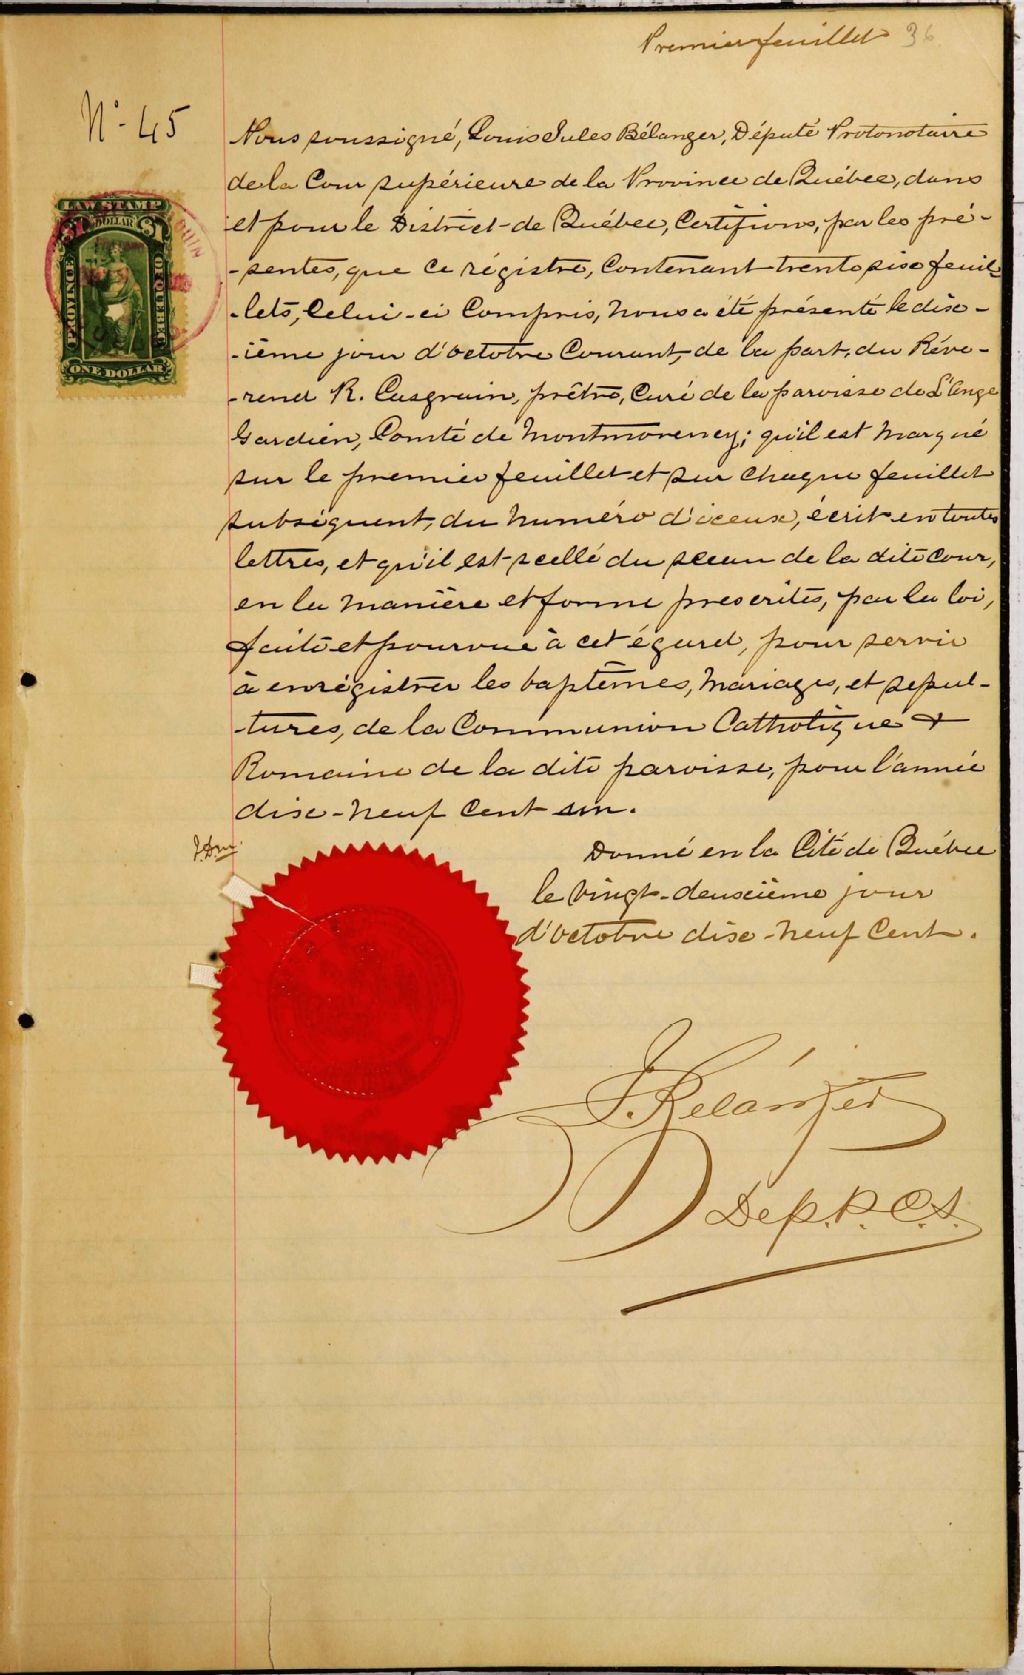 Premier feuillet 36
N° - 45
Nous soussigné, Louis Jules Bélanger, Député Protonotaire
de la Cour supérieure de la Province de Québec, dans
et pour le District de Québec, Certifions, par les pré-
-sentes, que ce régistre, Contenant trente six feuil-
-lets, Celui-ci Compris, nous a été présenté le dix-
-ième jour d'octobre Courant, de la part, du Réve-
-rend R. Casgrain, prêtre, Curé de la paroisse de L'Ange
Gardien, Comté de Montmorency; qu'il est marqué
sur le premier feuillet et sur chaque feuillet
subséquent, du numéro d'iceux, écrit en toutes
lettres, et qu'il est scellé du sceau de la dite cour,
en la manière et forme prescrites, par la loi,
faite et pourvue à cet égard, pour servir
à enrégistrer les baptêmes, mariages, et sépul-
-tures, de la Communion Catholique &
Romaine de la dite paroisse, pour l'année
dix-neuf cent un.
Donné en la Cité de Québec
le vingt-deuxième jour
d'octobre dix-neuf Cent.
J. Bélanger
Dep. P. C. S.
LAW STAMP
$1 DOLLAR $1
PROVINCE OF QUEBEC
ONE DOLLAR